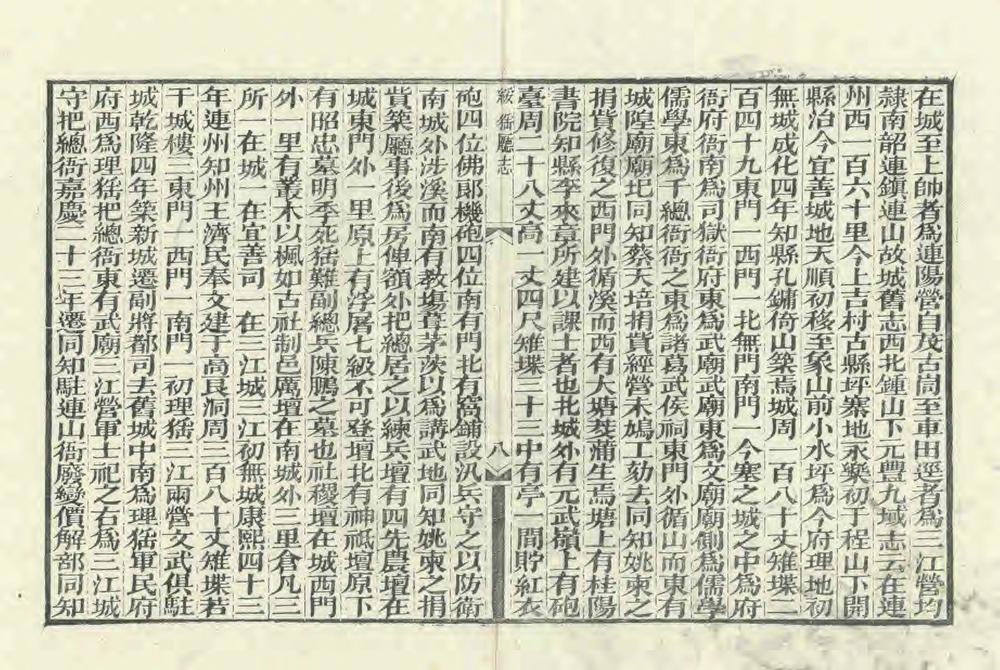 在城至上帥者爲連陽營自茂古峝至車田逕者爲三江營均
隸南韶連鎮連山故城舊志西北鍾山下元豐九域志云在連
州西一百六十里今上古村古縣坪寨地永樂初于程山下開
縣治今宜善城地天順初移至象山前小水坪爲今府理地初
無城成化四年知縣孔鏞倚山築焉城周一百八十丈雉堞二
百四十九東門一西門一北無門南門一今塞之城之中爲府
衙府衙南爲司獄衙府東爲武廟武廟東爲文廟廟側爲儒學
儒學東爲千總衙衙之東爲諸葛武侯祠東門外循山而東有
城隍廟廟圯同知蔡天培捐貲經營未鳩工劾去同知姚柬之
捐貲修復之西門外循溪而西有大塘茭蒲生焉塘上有桂陽
書院知縣李來章所建以課士者也北城外有元武嶺上有砲
臺周二十八丈高一丈四尺雉堞三十三中有亭一間貯紅衣
綏猺廳志 八
砲四位佛郞機砲四位南有門北有窩鋪設汛兵守之以防衛
南城外涉溪而南有教塲葺茅茨以爲講武地同知姚柬之捐
貲築廳事後爲房俾額外把總居之以練兵壇有四先農壇在
城東門外一里原上有浮屠七級不可登壇北有神祇壇原下
有昭忠墓明季死猺難副總兵陳鵬之墓也社稷壇在城西門
外一里有叢木以楓如古社制邑厲壇在南城外三里倉凡三
所一在城一在宜善司一在三江城三江初無城康熙四十三
年連州知州王濟民奉文建于高良洞周三百八十丈雉堞若
干城樓三東門一西門一南門一初理猺三江兩營文武俱駐
城乾隆四年築新城遷副將都司去舊城中南爲理猺軍民府
府西爲理猺把總衙東有武廟三江營軍士祀之右爲三江城
守把總衙嘉慶二十三年遷同知駐連山衙廢變價解部同知